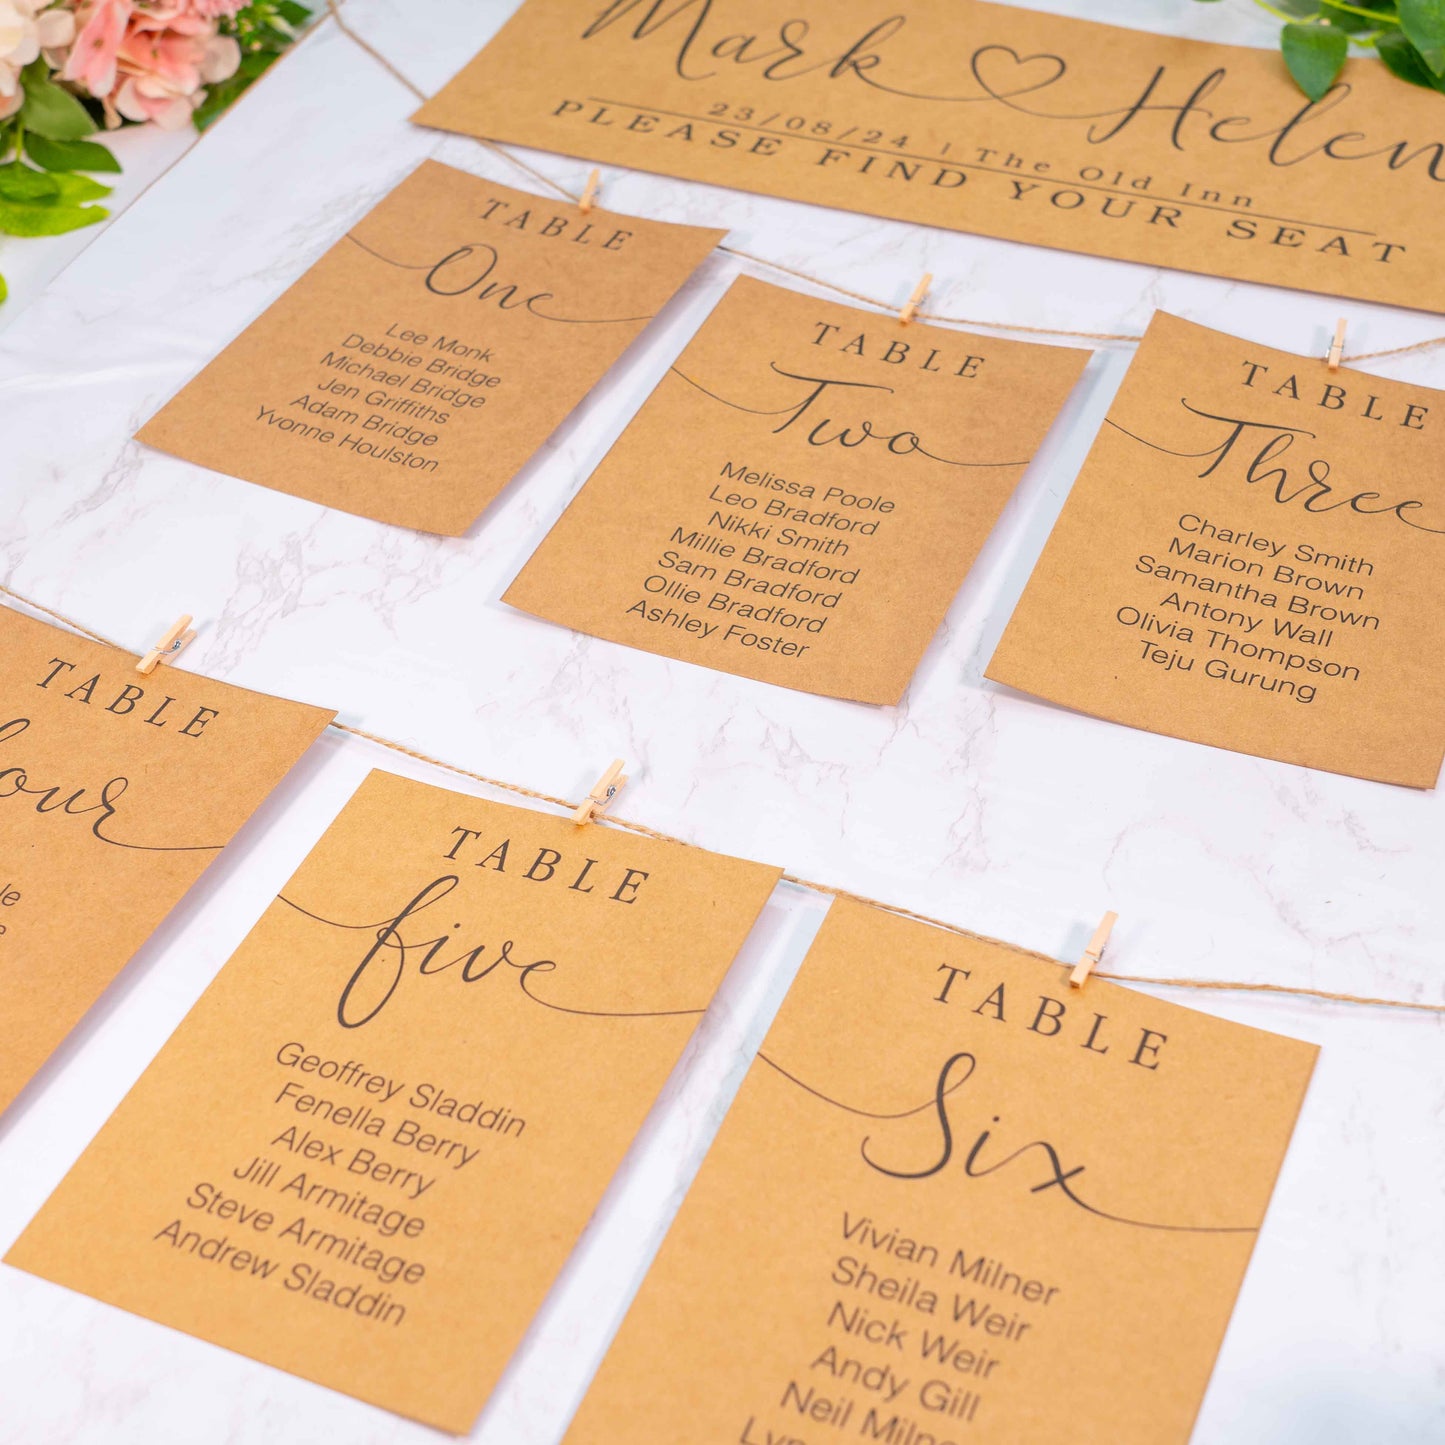 Mark Helen
23/08/24 | The Old Inn
PLEASE FIND YOUR SEAT
TABLE
One
Lee Monk
Debbie Bridge
Michael Bridge
Jen Griffiths
Adam Bridge
Yvonne Houlston
TABLE
Two
Melissa Poole
Leo Bradford
Nikki Smith
Millie Bradford
Sam Bradford
Ollie Bradford
Ashley Foster
TABLE
Three
Charley Smith
Marion Brown
Samantha Brown
Antony Wall
Olivia Thompson
Teju Gurung
TABLE
TABLE
five
Geoffrey Sladdin
Fenella Berry
Alex Berry
Jill Armitage
Steve Armitage
Andrew Sladdin
TABLE
Six
Vivian Milner
Sheila Weir
Nick Weir
Andy Gill
Neil